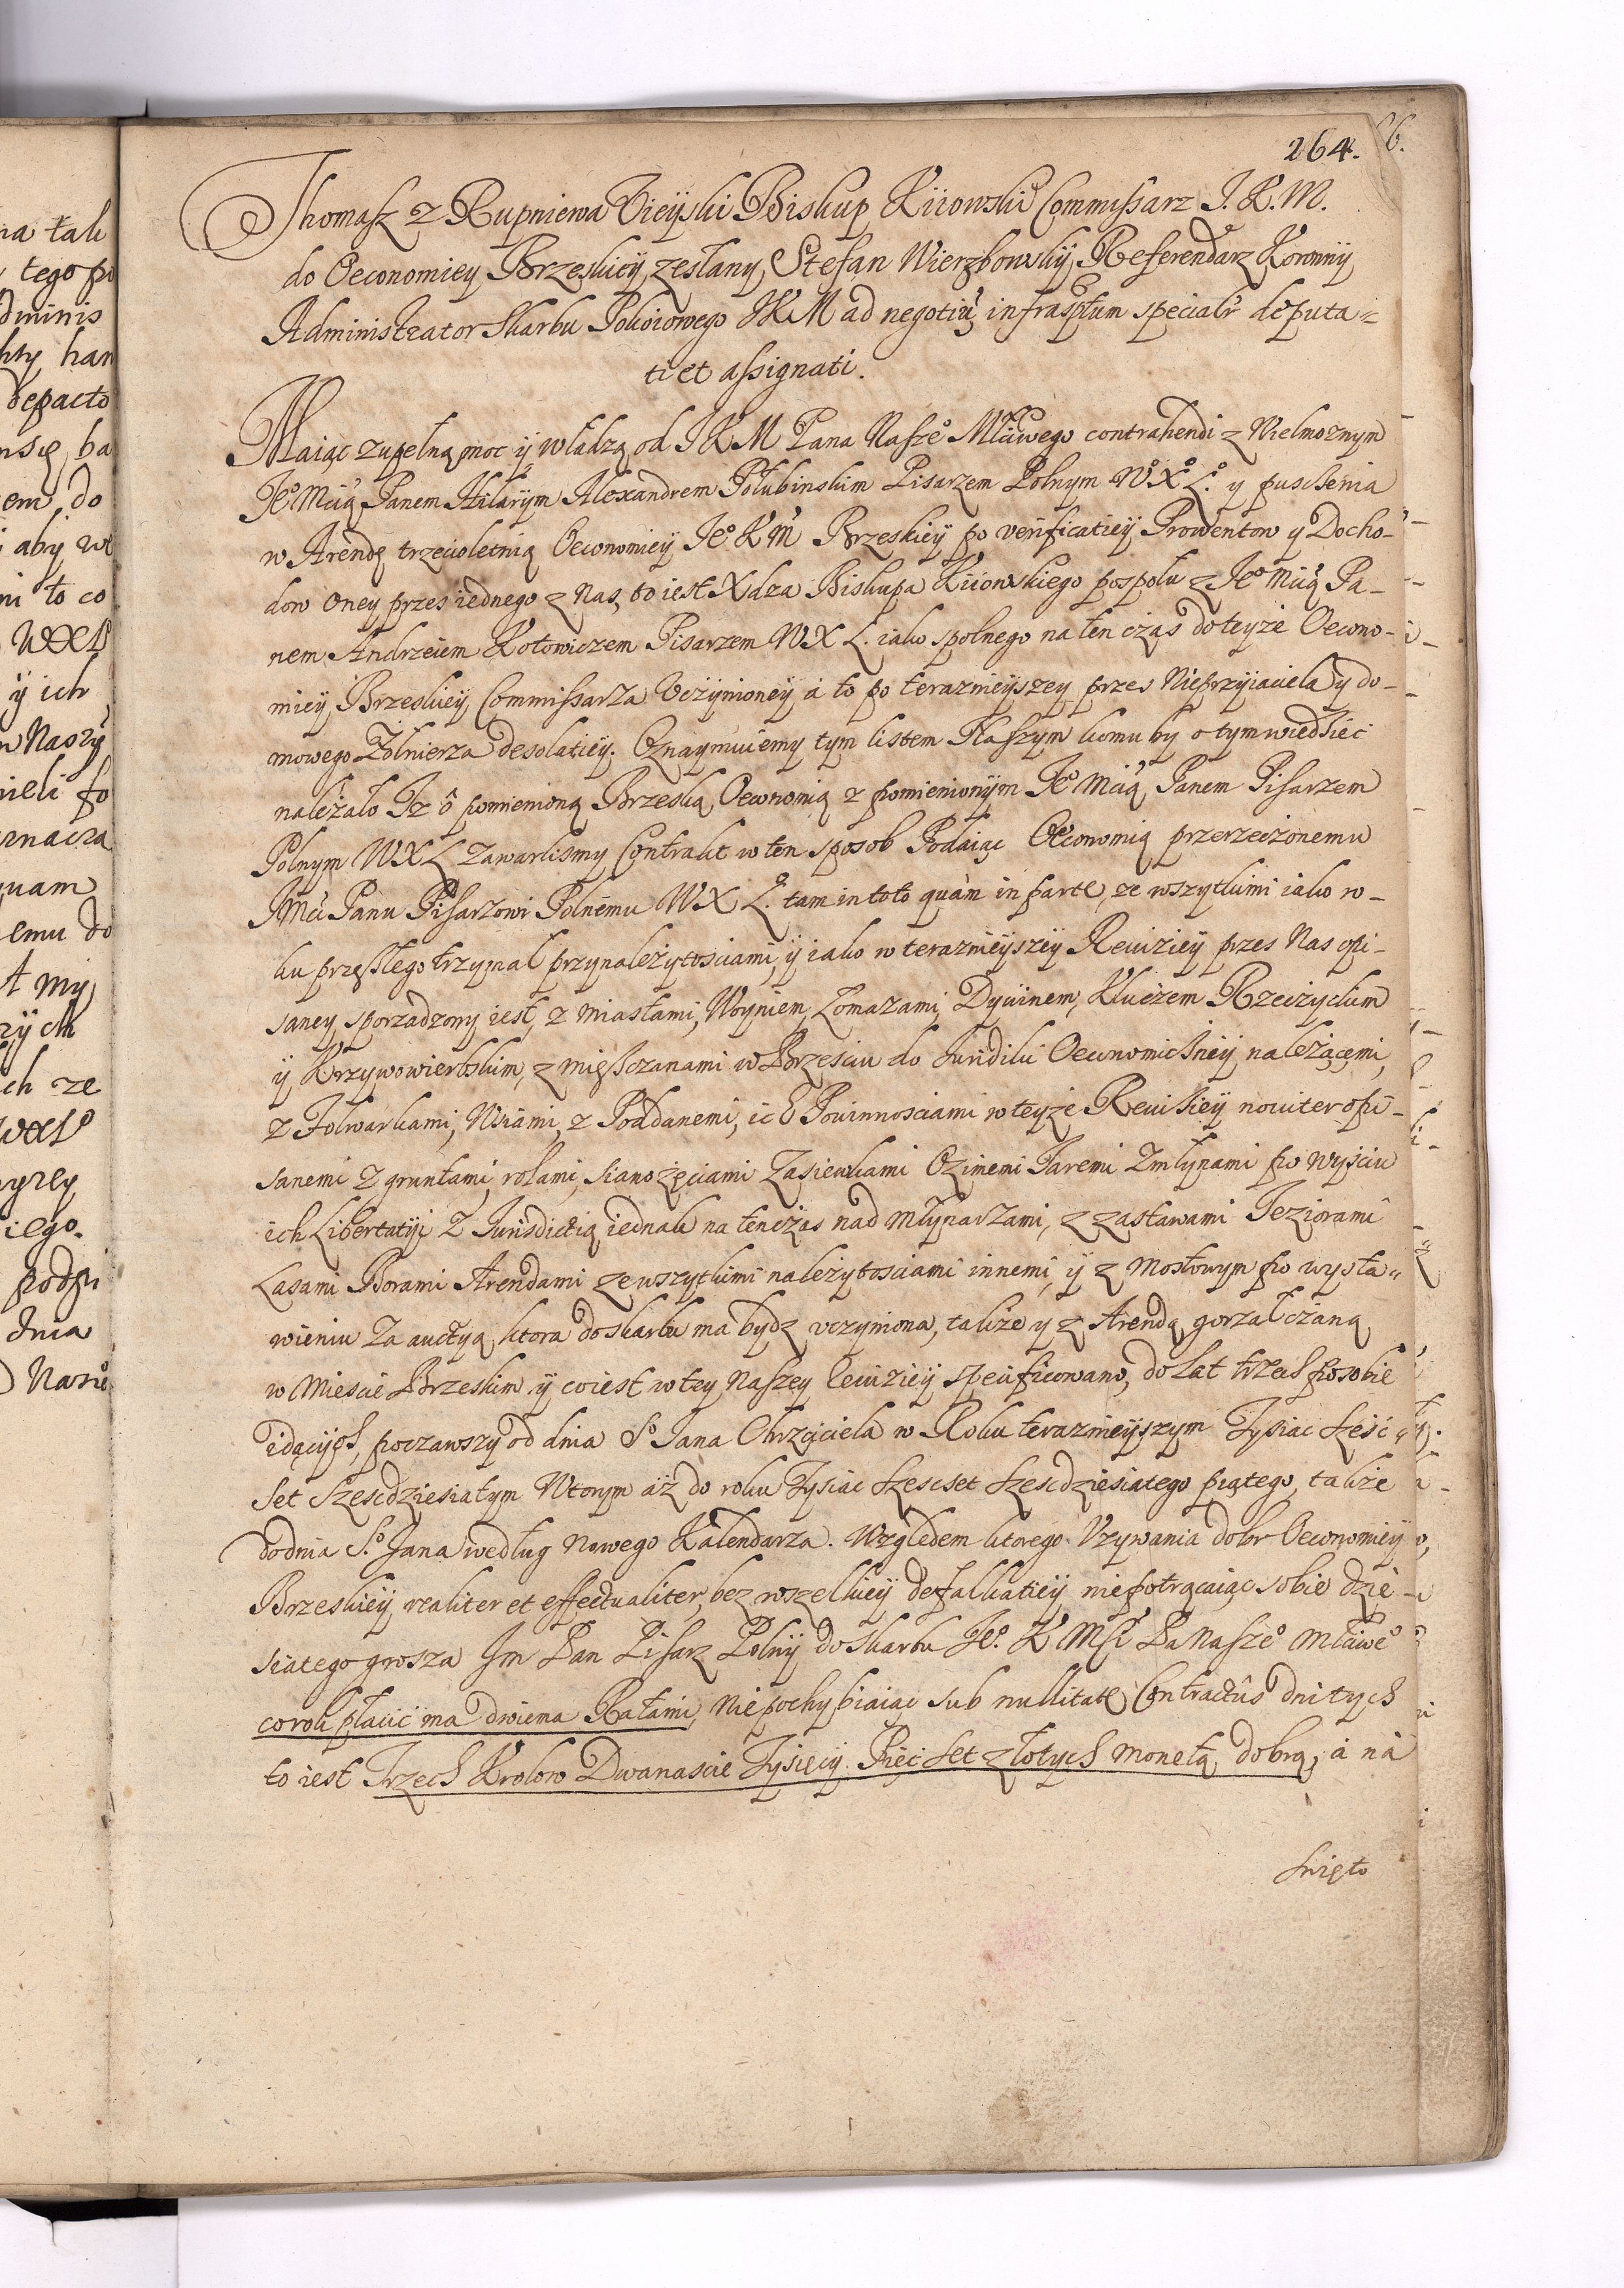 264.
Thomasz z Rupniewa Vieyski Biskup Kiiowski Commissarz J. K. M.
do Oeconomiey Brzeskiey zesłany, Stefan Wierzbowskÿ Referendarz Koronnÿ
Administrator Skarbu Pokoiowego JKM ad negotiũ infrasptum specialr deputa=
ti et assignati.
Maiąc zupełną moc ÿ władzą od J K M Pana Naszeo Młciwego contrahendi z Wielmoznym
Jeo Mcią Panem Hilarÿm Alexandrem Połubinskim Pisarzem Polnym Wo Xo Lo. y puszczenia
w Arendę trzecioletnią Oeconomieÿ Jeo K M Brzeskieÿ po verificatieÿ Prowentow y Docho-
dow oney przes iednego z Nas, to iest Xdza Biskupa Kiiowskiego pospołu z Jeo Mcią Pa-
nem Andrzeiem Kotowiczem Pisarzem W X L. iako spolnego na ten czas do teyże Oecono-
mieÿ Brzeskieÿ Commissarza vczÿnioneÿ, á to po terazniejszey przes Nieprzÿiaciela y do-
mowego Zołnierza desolatieÿ. Oznaymuiemy tym listem Naszym komu by o tym wiedziec
należało Iz ô pomienioną Brzeską Oeconomią z pomienionÿm Jeo Mcią Panem Pisarzem
Polnym W X L zawarlismy Contrakt w ten sposob Podaiąc Oeconomią przerzeczonemu
JMci Panu Pisarzowi Polnemu W X L. tam in toto quàm in parte, ze wszytkimi iako ro-
ku przeszłego trzymał przynależytosciami, ÿ iako w terazniejszeÿ Rewizieÿ przes Nas opi-
saney sporzadzony iest, z miastami, Woyniem, Łomazami, Dywinem, Kluczem Rzeczyckim
ÿ Krzywowierbskim, z mieszczanami w Brzesciu do Juridiki Oeconomiczneÿ należącemi,
z Folwarkami, Wsiami, z Poddanemi, ich Powinnosciami w teyże Rewizieÿ noviter opi-
sanemi z gruntami, rolami, sianożęciami Zasiewkami Ozimemi Jaremi z młynami po wyjsciu
ich Libertatÿ z Jurisdictią iednak na tenczas nad młynarzami, z zastawami Jeziorami
Lasami Borami Arendami ze wszytkimi należytosciami innemi, ÿ z mostowym po wysta=
wieniu za auctyą ktora do skarbu ma bydz vczyniona, także y z Arendą gorzałczaną
w Miescie Brzeskim ÿ co iest w tey Naszey rewizieÿ specificowano, do Lat trzech po sobie
idącÿch, począwszy od dnia So Jana Chrzciciela w Roku terazniejszym Tysiac szesc
set szescdziesiatym Wtorym áż do roku Tysiac szescset szescdziesiatego piątego, także
do dnia S.o Jana według nowego Kalendarza. Względem ktorego Vzywania dobr Oeconomieÿ
Brzeskieÿ, realiter et effectualiter, bez wszelkieÿ defalkatieÿ nie potrącaiąc sobie dzie-
siatego grosza Jm Pan Pisarz Polnÿ do skarbu Jeo. K Msci Pa Naszeo Młciweo
co rok płacic ma dwiema Ratami, nie pochybiaiąc sub nullitate Contractûs dni tych
to iest Trzech Krolow Dwanascie Tysięcy Pięc set złotych monetą dobrą, á ná
swięto